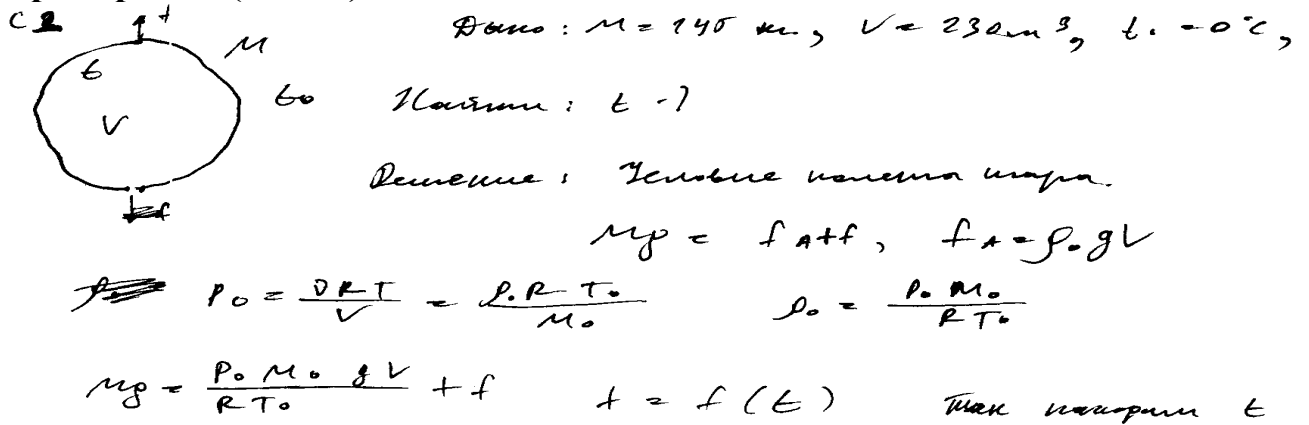 C2
f
t M
V
t₀
f
Дано: M = 145 кг, V = 230 м³, t₀ = 0°C,
Найти: t - ?
Решение: Условие полета шара.
Mg = f_A + f, f_A = ρ₀gV
P₀ = νRT/V = ρ₀RT₀/M₀ ρ₀ = P₀M₀/RT₀
Mg = P₀M₀gV/RT₀ + f f = f(t) Так находим t